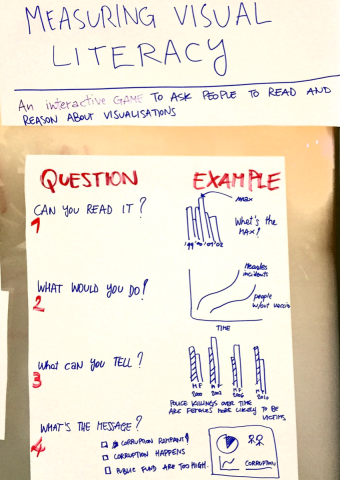 MEASURING VISUAL
LITERACY
An interactive GAME TO ASK PEOPLE TO READ AND
REASON ABOUT VISUALISATIONS
QUESTION
EXAMPLE
CAN YOU READ IT?
1
max
What's the
MAX?
WHAT WOULD YOU DO?
2
Measles
incidents
people
w/out vaccin
TIME
What can YOU TELL?
3
M F
2000
M F
2002
M F
2006
M F
2010
POLICE KILLINGS OVER TIME
ARE FEMALES MORE LIKELY TO BE
VICTIMS
WHAT'S THE MESSAGE?
4
CORRUPTION RAMPANT
CORRUPTION HAPPENS
PUBLIC FUND ARE TOO HIGH.
CORRUPTION